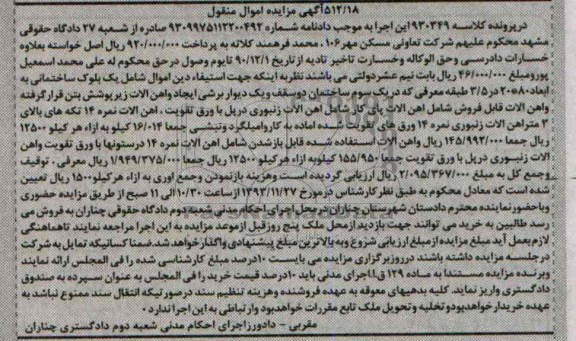 ۵۱۲/۱۸آگهی مزایده اموال منقول
درپرونده کلاسه ۹۳۰۳۴۹ این اجرا به موجب دادنامه شماره ۹۳۰۹۹۷۵۱۱۳۲۰۰۴۹۲ صادره از شعبه ۲۷ دادگاه حقوقی
مشهد محکوم علیهم شرکت تعاونی مسکن مهر۱۰۶ ، محمد فرهمند کلاته به پرداخت ۹۲۰/۰۰۰/۰۰۰ ریال اصل خواسته بعلاوه
خسارات دادرسی وحق الوکاله وخسارت تاخیر تادیه از تاریخ ۹۰/۱۲/۱ تایوم وصول درحق محکوم له علی محمد اسمعیل
پورومبلغ ۴۶/۰۰۰/۰۰۰ ریال بابت نیم عشردولتی می باشند نظر به اینکه جهت استیفاء دین اموال شامل یک بلوک ساختمانی به
ابعاد۸۰*۲۰ در۳/۵ طبقه معرفی که دریک سوم ساختمان دوسقف ویک دیوار برشی ایجاد واهن الات زیرپوشش بتن قرار گرفته
واهن الات قابل فروش شامل اهن الات در کار شامل اهن الات زنبوری درپل با ورق تقویت ، اهن الات نمره ۱۴ تکه های بالای
۳ متراهن الات زنبوری نمره ۱۴ ورق های تقویت شده اماده به کارومیلگرد ونبشی جمعا ۱۶/۰۱۴ کیلو به ازاء هر کیلو ۱۲۵۰۰
ریال جمعا ۱۴۵/۹۹۲/۰۰۰ ریال واهن الات استفاده شده قابل بازشدن شامل اهن الات نمره ۱۴ درستونها با ورق تقویت واهن
الات زنبوری درپل با ورق تقویت جمعا ۱۵۵/۹۵۰ کیلوبه ازاء هرکیلو ۱۲۵۰۰ ریال جمعا ۱/۹۴۹/۳۷۵/۰۰۰ ریال معرفی ، توقیف
وجمع کل به مبلغ ۲/۰۹۵/۳۶۷/۰۰۰ ریال ارزیابی گردیده است وهزینه بازنمودن وجمع اوری به ازاء هرکیلو۱۵۰۰ ریال تعیین
شده است که معادل محکوم به طبق نظر کارشناس درمورخ ۱۳۹۳/۱۱/۲۷ ازساعت ۱۰/۳۰ الی ۱۱ صبح از طریق مزایده حضوری
وباحضورنماینده محترم دادستان شهرستان چناران درمحل اجرای احکام مدنی شعبه دوم دادگاه حقوقی چناران به فروش می
رسد طالبین به خرید می توانند جهت بازدید ازمحل ملک پنج روزقبل ازموعد مزایده به این اجرا مراجعه نمایند تاهماهنگی
لازم بعمل آید مبلغ مزایده ازمبلغ ارزیابی شروع وبه بالاترین مبلغ پیشنهادی واگذار خواهد شد.ضمنا کسانیکه تمایل به شرکت
درجلسه مزایده داشته باشند درروزبرگزاری مزایده می بایست ۱۰درصد مبلغ کارشناسی شده را فی المجلس ارائه نمایند
وبرنده مزایده مستندا به ماده ۱۲۹ ق.ا.اجرای مدنی باید ۱۰درصد قیمت خرید را فی المجلس به عنوان سپرده به صندوق
دادگستری واریز نماید. کلیه بدهیهای معوقه به عهده فروشنده وهزینه تنظیم سند درصورتیکه انتقال سند ممنوع نباشد به
عهده خریدار خواهدبودوتخلیه وتحویل ملک تابع مقررات خواهدبود وارتباطی به این اجرا ندارد .
مقربی - دادورزاجرای احکام مدنی شعبه دوم دادگستری چناران